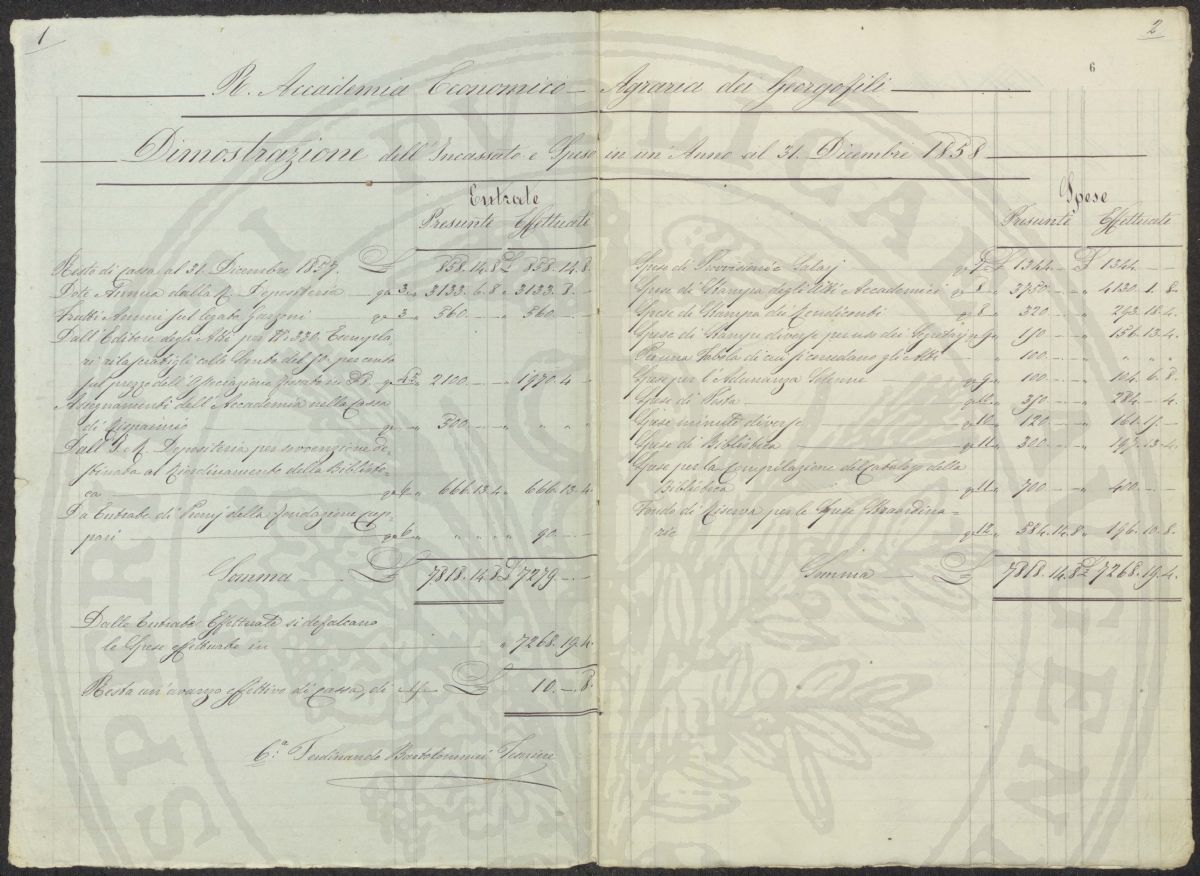 1
R. Accademia Economico-Agraria dei Georgofili
Dimostrazione dell'Incassato e Speso in un'Anno al 31. Dicembre 1858
Entrate
Presunte Effettuate
Resto di cassa al 31. Dicembre 1857. £ 858.14.8 £ 858.14.8
Dote Annua dalla R. Depositeria 3 " 3133.6.8 " 3133.8.-
Frutti Annui sul legato Gazzeri 3 " 560.-.- " 560.-.-
Dall'Editore degli Atti per N.º 330 Esempla-
ri rilasciatigli collo Sconto del 30. per cento
sul prezzo dell'Associazione fissato in 2100.-.- 1970.4.-
Assegnamenti dell'Accademia nella Cassa
di Risparmio 500.-.- " " "
Dall'I. R. Depositeria per sovvenzione de-
stinata al Riordinamento della Bibliote-
ca " 666.13.4 " 666.13.4
Da Entrate di Premj della fondazione Cup-
pari " " " " 90.-.-
Somma £ 7818.14.8 £ 7279.-.-
Dalle Entrate Effettuate si defalcano
le Spese effettuate in " 7268.19.4
Resta un'avanzo effettivo di cassa di £ 10.-.8
C.e Ferdinando Bartolommei Tesoriere
2
6
Spese
Presunte Effettuate
Spese di Provvisioni e Salarj £ 1344.-.- £ 1344.-.-
Spese di Stampa degli Atti Accademici 8 " 3750.-.- " 4130.1.8
Spese di Stampa dei Rendiconti 8 " 320.-.- " 293.18.4
Spese di Stampe diverse per uso dei Segretarj 9 " 150.-.- " 156.13.4
" 100.-.- " " "
Spese per l'Adunanza Solenne 9 " 100.-.- " 104.6.8
Spese di Posta " 350.-.- " 284.-.4
Spese minute diverse " 120.-.- " 161.
Spese di Biblioteca " 300.-.- " 197.13.4
Spese per la Compilazione del Catalogo della
Biblioteca " 700.-.- " 400.-.-
Fondo di Riserva per le Spese Straordina-
rie 12 " 584.14.8 " 196.10.8
Somma £ 7818.14.8 £ 7268.19.4